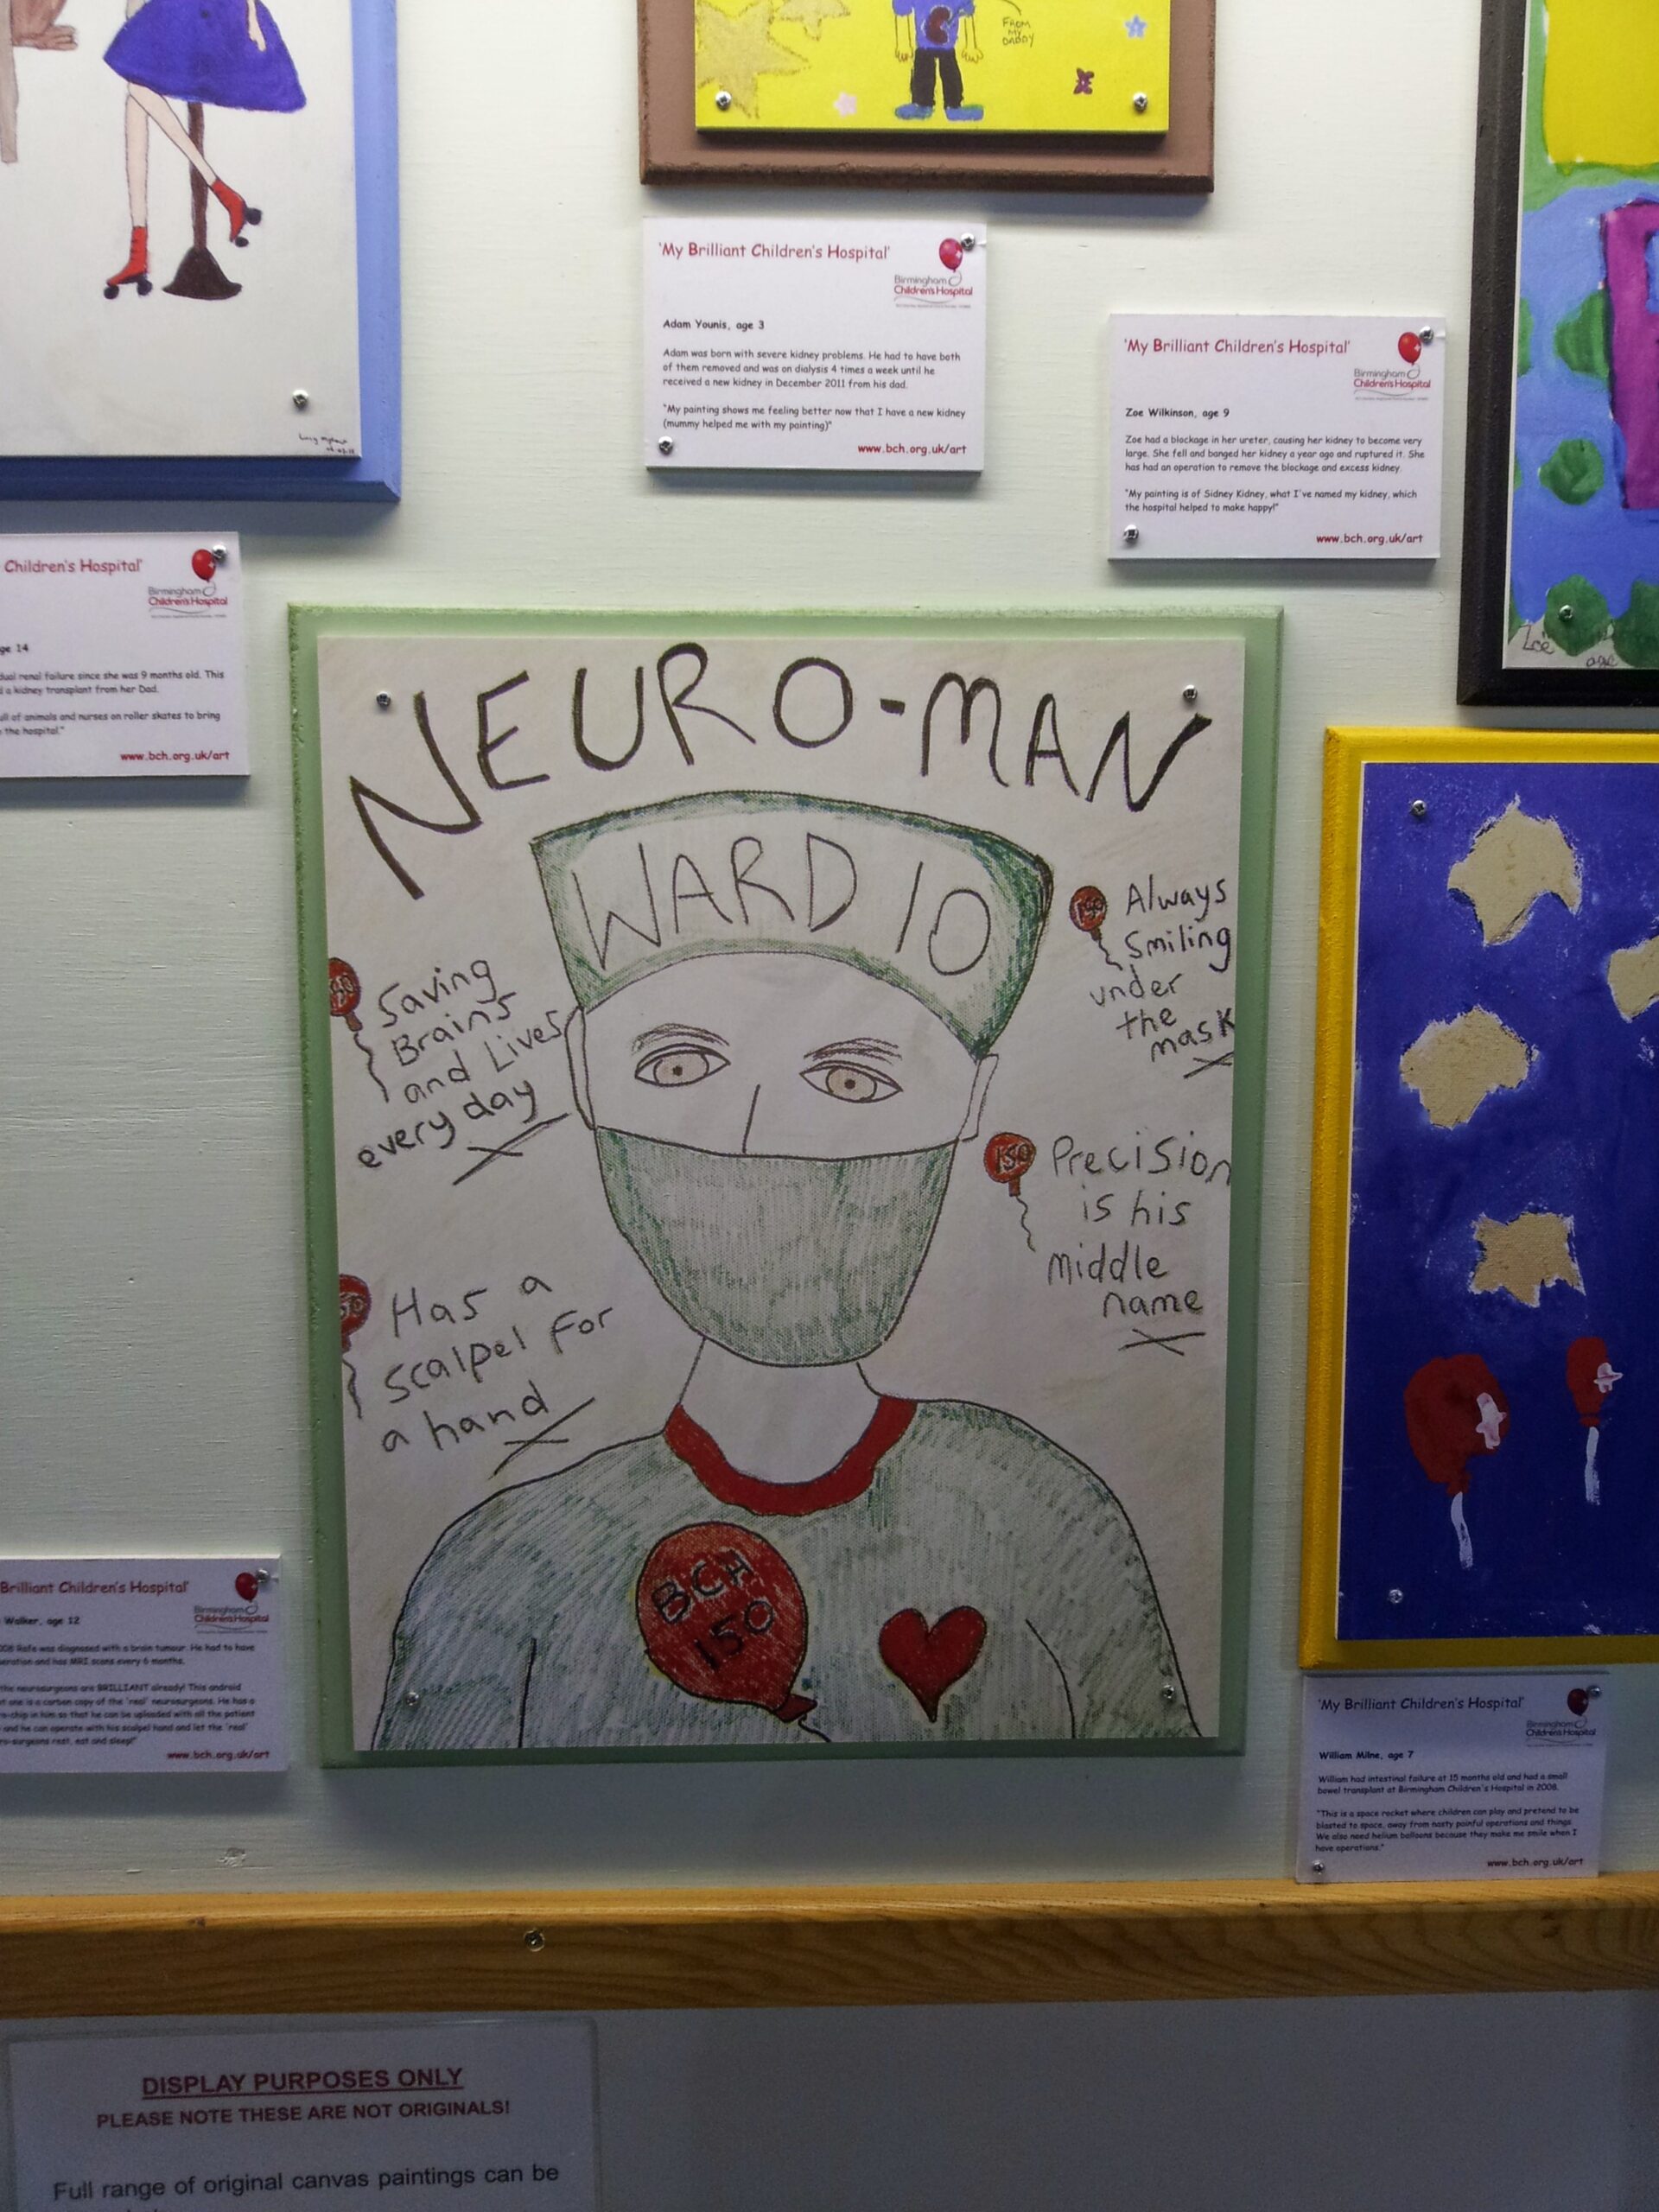 FROM
MY
DADDY
'My Brilliant Children's Hospital'
Birmingham
Children's Hospital
Adam Younis, age 3
Adam was born with severe kidney problems. He had to have both
of them removed and was on dialysis 4 times a week until he
received a new kidney in December 2011 from his dad.
"My painting shows me feeling better now that I have a new kidney
(mummy helped me with my painting)"
www.bch.org.uk/art
'My Brilliant Children's Hospital'
Birmingham
Children's Hospital
Zoe Wilkinson, age 9
Zoe had a blockage in her ureter, causing her kidney to become very
large. She fell and banged her kidney a year ago and ruptured it. She
has had an operation to remove the blockage and excess kidney.
"My painting is of Sidney Kidney, what I've named my kidney, which
the hospital helped to make happy!"
www.bch.org.uk/art
Zoë
age
Children's Hospital'
Birmingham
Children's Hospital
ge 14
dual renal failure since she was 9 months old. This
a kidney transplant from her Dad.
ull of animals and nurses on roller skates to bring
the hospital."
www.bch.org.uk/art
NEURO-MAN
WARD 10
Saving
Brains
and Lives
every day
150
Always
Smiling
under
the
mask
150
Precision
is his
middle
name
Has a
scalpel for
a hand
BCH
150
Brilliant Children's Hospital'
Birmingham
Children's Hospital
Walker, age 12
008 Rafe was diagnosed with a brain tumour. He had to have
eration and has MRI scans every 6 months.
the neurosurgeons are BRILLIANT already! This android
t one is a carbon copy of the 'real' neurosurgeons. He has a
o-chip in him so that he can be uploaded with all the patient
and he can operate with his scalpel hand and let the 'real'
ro-surgeons rest, eat and sleep!"
www.bch.org.uk/art
'My Brilliant Children's Hospital'
Birmingham
Children's Hospital
William Milne, age 7
William had intestinal failure at 15 months old and had a small
bowel transplant at Birmingham Children's Hospital in 2008.
"This is a space rocket where children can play and pretend to be
blasted to space, away from nasty painful operations and things.
We also need helium balloons because they make me smile when I
have operations."
www.bch.org.uk/art
DISPLAY PURPOSES ONLY
PLEASE NOTE THESE ARE NOT ORIGINALS!
Full range of original canvas paintings can be